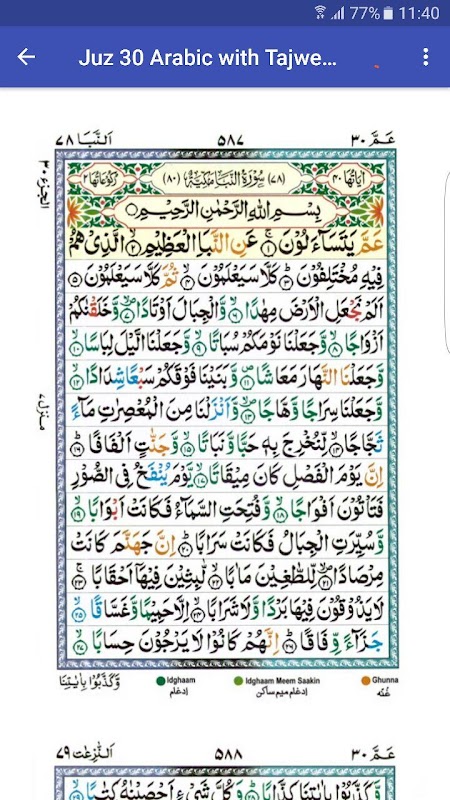 77% 11:40
Juz 30 Arabic with Tajwe...
عَمَّ ٣٠ ٥٨٧ اَلنَّبَا ٧٨
الجزء ٣٠
اٰيَاتُهَا ٤٠ (٧٨) سُوْرَةُ النَّبَاِ مَكِّيَّةٌ (٨٠) رُكُوْعَاتُهَا ٢
بِسْمِ اللّٰهِ الرَّحْمٰنِ الرَّحِيْمِ
عَمَّ يَتَسَآءَلُوْنَ ۝١ عَنِ النَّبَاِ الْعَظِيْمِ ۝٢ الَّذِيْ هُمْ
فِيْهِ مُخْتَلِفُوْنَ ۝٣ كَلَّا سَيَعْلَمُوْنَ ۝٤ ثُمَّ كَلَّا سَيَعْلَمُوْنَ ۝٥
اَلَمْ نَجْعَلِ الْاَرْضَ مِهٰدًا ۝٦ وَّالْجِبَالَ اَوْتَادًا ۝٧ وَّخَلَقْنٰكُمْ
اَزْوَاجًا ۝٨ وَّجَعَلْنَا نَوْمَكُمْ سُبَاتًا ۝٩ وَّجَعَلْنَا الَّيْلَ لِبَاسًا ۝١٠
وَّجَعَلْنَا النَّهَارَ مَعَاشًا ۝١١ وَّبَنَيْنَا فَوْقَكُمْ سَبْعًا شِدَادًا ۝١٢
وَّجَعَلْنَا سِرَاجًا وَّهَّاجًا ۝١٣ وَّاَنْزَلْنَا مِنَ الْمُعْصِرٰتِ مَآءً
ثَجَّاجًا ۝١٤ لِّنُخْرِجَ بِهٖ حَبًّا وَّنَبَاتًا ۝١٥ وَّجَنّٰتٍ اَلْفَافًا ۝١٦
اِنَّ يَوْمَ الْفَصْلِ كَانَ مِيْقَاتًا ۝١٧ يَّوْمَ يُنْفَخُ فِي الصُّوْرِ
فَتَاْتُوْنَ اَفْوَاجًا ۝١٨ وَّفُتِحَتِ السَّمَآءُ فَكَانَتْ اَبْوَابًا ۝١٩
وَّسُيِّرَتِ الْجِبَالُ فَكَانَتْ سَرَابًا ۝٢٠ اِنَّ جَهَنَّمَ كَانَتْ
مِرْصَادًا ۝٢١ لِّلطّٰغِيْنَ مَاٰبًا ۝٢٢ لّٰبِثِيْنَ فِيْهَآ اَحْقَابًا ۝٢٣
لَا يَذُوْقُوْنَ فِيْهَا بَرْدًا وَّلَا شَرَابًا ۝٢٤ اِلَّا حَمِيْمًا وَّغَسَّاقًا ۝٢٥
جَزَآءً وِّفَاقًا ۝٢٦ اِنَّهُمْ كَانُوْا لَا يَرْجُوْنَ حِسَابًا ۝٢٧
منزل ٧
وَّكَذَّبُوْا بِاٰيٰتِنَا
Idghaam Idghaam Meem Saakin Ghunna
ادغام ادغام میم ساکن غُنّہ
عَمَّ ٣٠ ٥٨٨ اَلنّٰزِعٰت ٧٩
وَّكَذَّبُوْا بِاٰيٰتِنَا كِذَّابًا ۝ وَكُلَّ شَيْءٍ اَحْصَيْنٰهُ كِتٰبًا